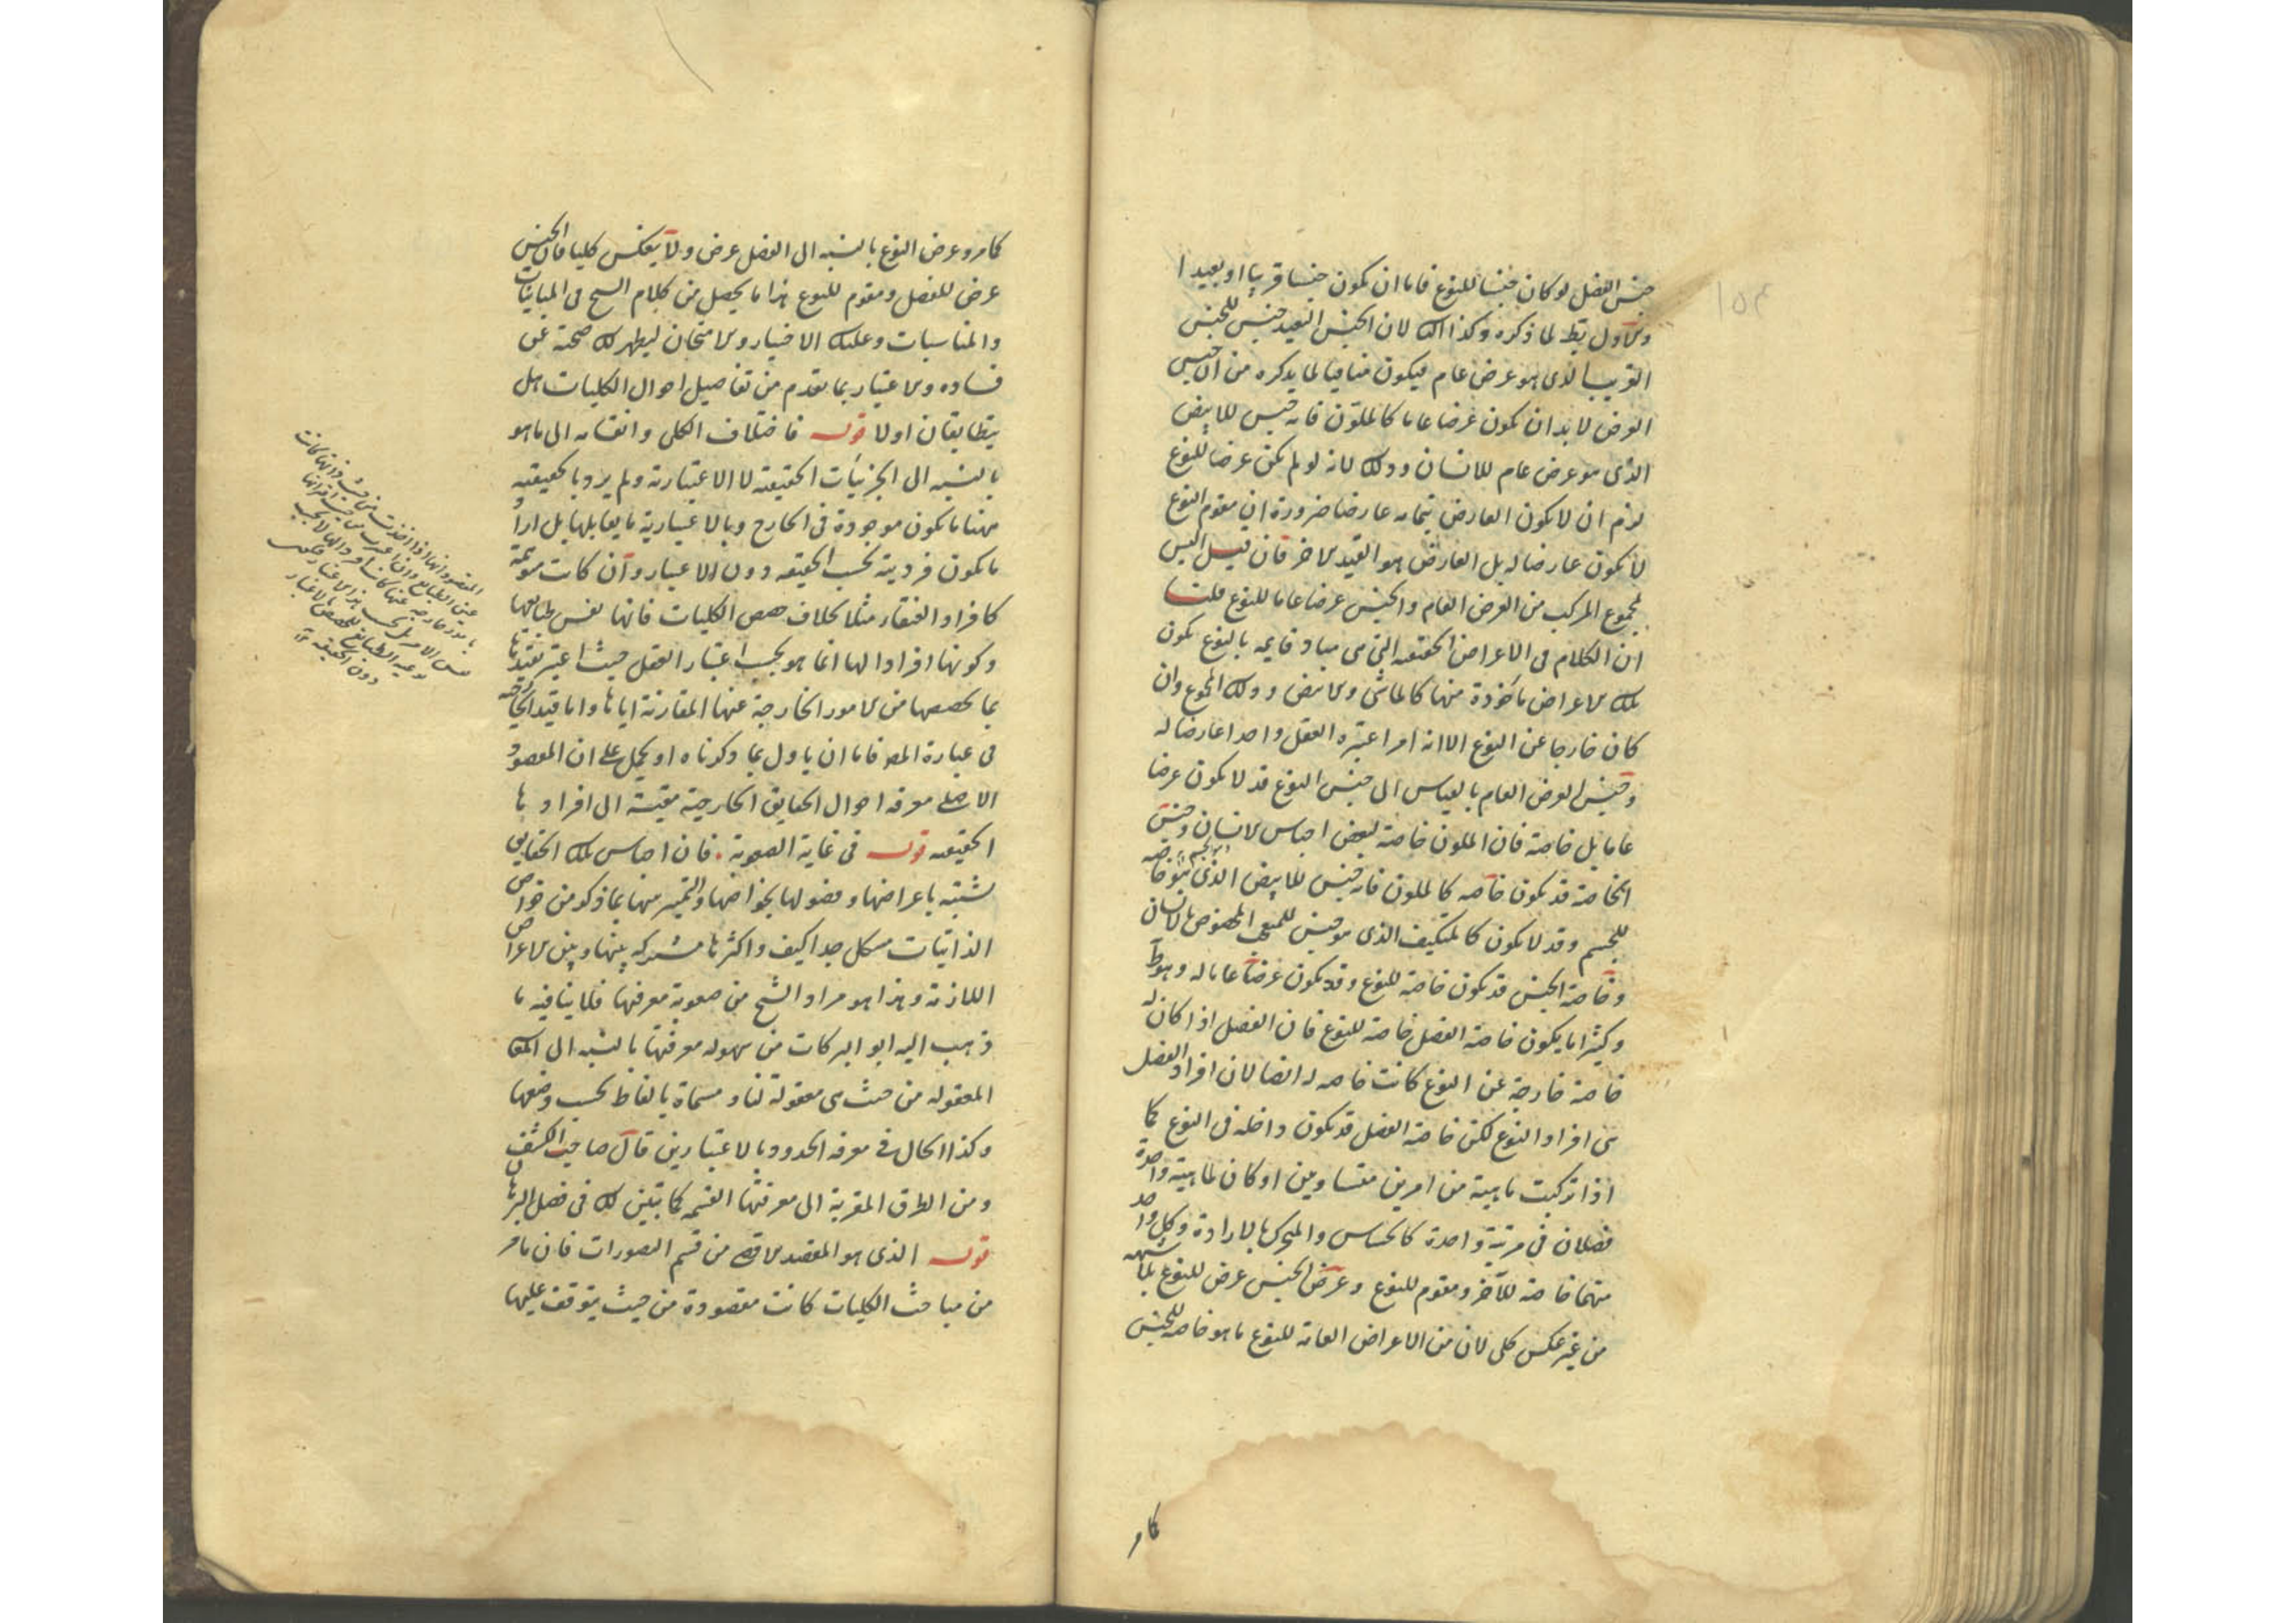 جنس الفصل لو كان جنسا للنوع فاما ان يكون جنسا قريبا او بعيدا
والاول بط لما ذكره وكذا الك لان الجنس البعيد جنس للجنس
القريب الذى هو عرض عام فيكون منافيا لما يذكره من ان جنس
العرض لا بد ان يكون عرضا عاما كالملون فانه جنس للابيض
الذى هو عرض عام للانسان وذلك لانه لو لم يكن عرضا للنوع
لزم ان لا يكون العارض بتمامه عارضا ضرورة ان مقوم النوع
لا يكون عارضا له بل العارض هو القيد الاخر فان قيل اليس
المجموع المركب من العرض العام والجنس عرضا عاما للنوع قلت
ان الكلام فى الاعراض الحقيقية التى هى مباد قايمه بالنوع يكون
تلك الاعراض ماخوذة منها كالماشى والابيض وذلك المجموع وان
كان خارجا عن النوع الا انه امر اعتبره العقل واحدا عارضا له
وجنس العرض العام بالقياس الى جنس النوع قد لا يكون عرضا
عاما بل خاصة فان الملون خاصة لبعض اجناس الانسان وجنس
الخاصة قد يكون خاصه كالملون فانه جنس للابيض الذى هو خاصه
للجسم وقد لا يكون كالمتكيف الذى هو جنس للمتعجب المخصوص بالانسان
وخاصة الجنس قد تكون خاصة للنوع وقد يكون عرضا عاما له وهو ظ
وكثيرا ما يكون خاصة الفصل خاصة للنوع فان الفصل اذا كان له
خاصة خارجة عن النوع كانت خاصه له ايضا لان افراد الفصل
هى افراد النوع لكن خاصة الفصل قد تكون داخله فى النوع كما
اذا تركبت ماهية من امرين متساويين او كان لماهية واحدة
فصلان فى مرتبة واحدة كالحساس والمتحرك بالارادة وكل واحد
منهما خاصة للآخر ومقوم للنوع وعرض الجنس عرض للنوع
من غير عكس كلى لان من الاعراض العامة للنوع ما هو خاصه للجنس
كامر
كامر وعرض النوع بالنسبه الى الفصل عرض ولا ينعكس كليا فان الجنس
عرض للفصل ومقوم للنوع هذا ما يحصل من كلام الشيخ فى المباينات
والمناسبات وعليك الاختبار والامتحان ليظهر لك صحته عن
فساده والاعتبار بما تقدم من تفاصيل احوال الكليات هل
يتطابقان اولا قوله فاختلاف الكلى وانقسامه الى ما هو
بالنسبه الى الجزئيات الحقيقية لا الاعتبارية ولم يرد بالحقيقيه
ههنا ما يكون موجودة فى الخارج وبالاعتبارية ما يقابلها بل اراد
ما يكون فرديته بحسب الحقيقه دون الاعتبار وان كانت متوهمة
كافراد العنقاء مثلا بخلاف حصص الكليات فانها نفس طبايعها
وكونها افرادا لها انما هو بحسب اعتبار العقل حيث اعتبر تقييدها
بما يخصصها من الامور الخارجة عنها المقارنة اياها واما قيد الخارجيه
فى عبارة المصـ فاما ان ياول بما ذكرناه او يحمل على ان المقصود
الاصلى معرفه احوال الحقايق الخارجية مقيسة الى افرادها
الحقيقيه قوله فى غاية الصعوبة . فان اجناس تلك الحقايق
تشتبه باعراضها وفصولها بخواصها والتمييز بينها بما ذكر من خواص
الذاتيات مشكل جدا كيف واكثرها مشتركه بينها وبين الاعراض
اللازمة وهذا هو مراد الشيخ من صعوبة معرفتها فلا ينافيه ما
ذهب اليه ابو البركات من سهوله معرفتها بالنسبه الى الحقا
المعقوله من حيث هى معقولة لنا ومسماة بالفاظ بحسب وضعها
وكذا الحال فى معرفه الحدود بالاعتبارين قال صاحب الكشف
ومن الطرق المقربة الى معرفتها القسمة كما تبين لك فى فصل البرهان
قوله الذى هو المقصد الاقصى من قسم التصورات فان ما مر
من مباحث الكليات كانت مقصودة من حيث يتوقف عليها
دون الحقيقه